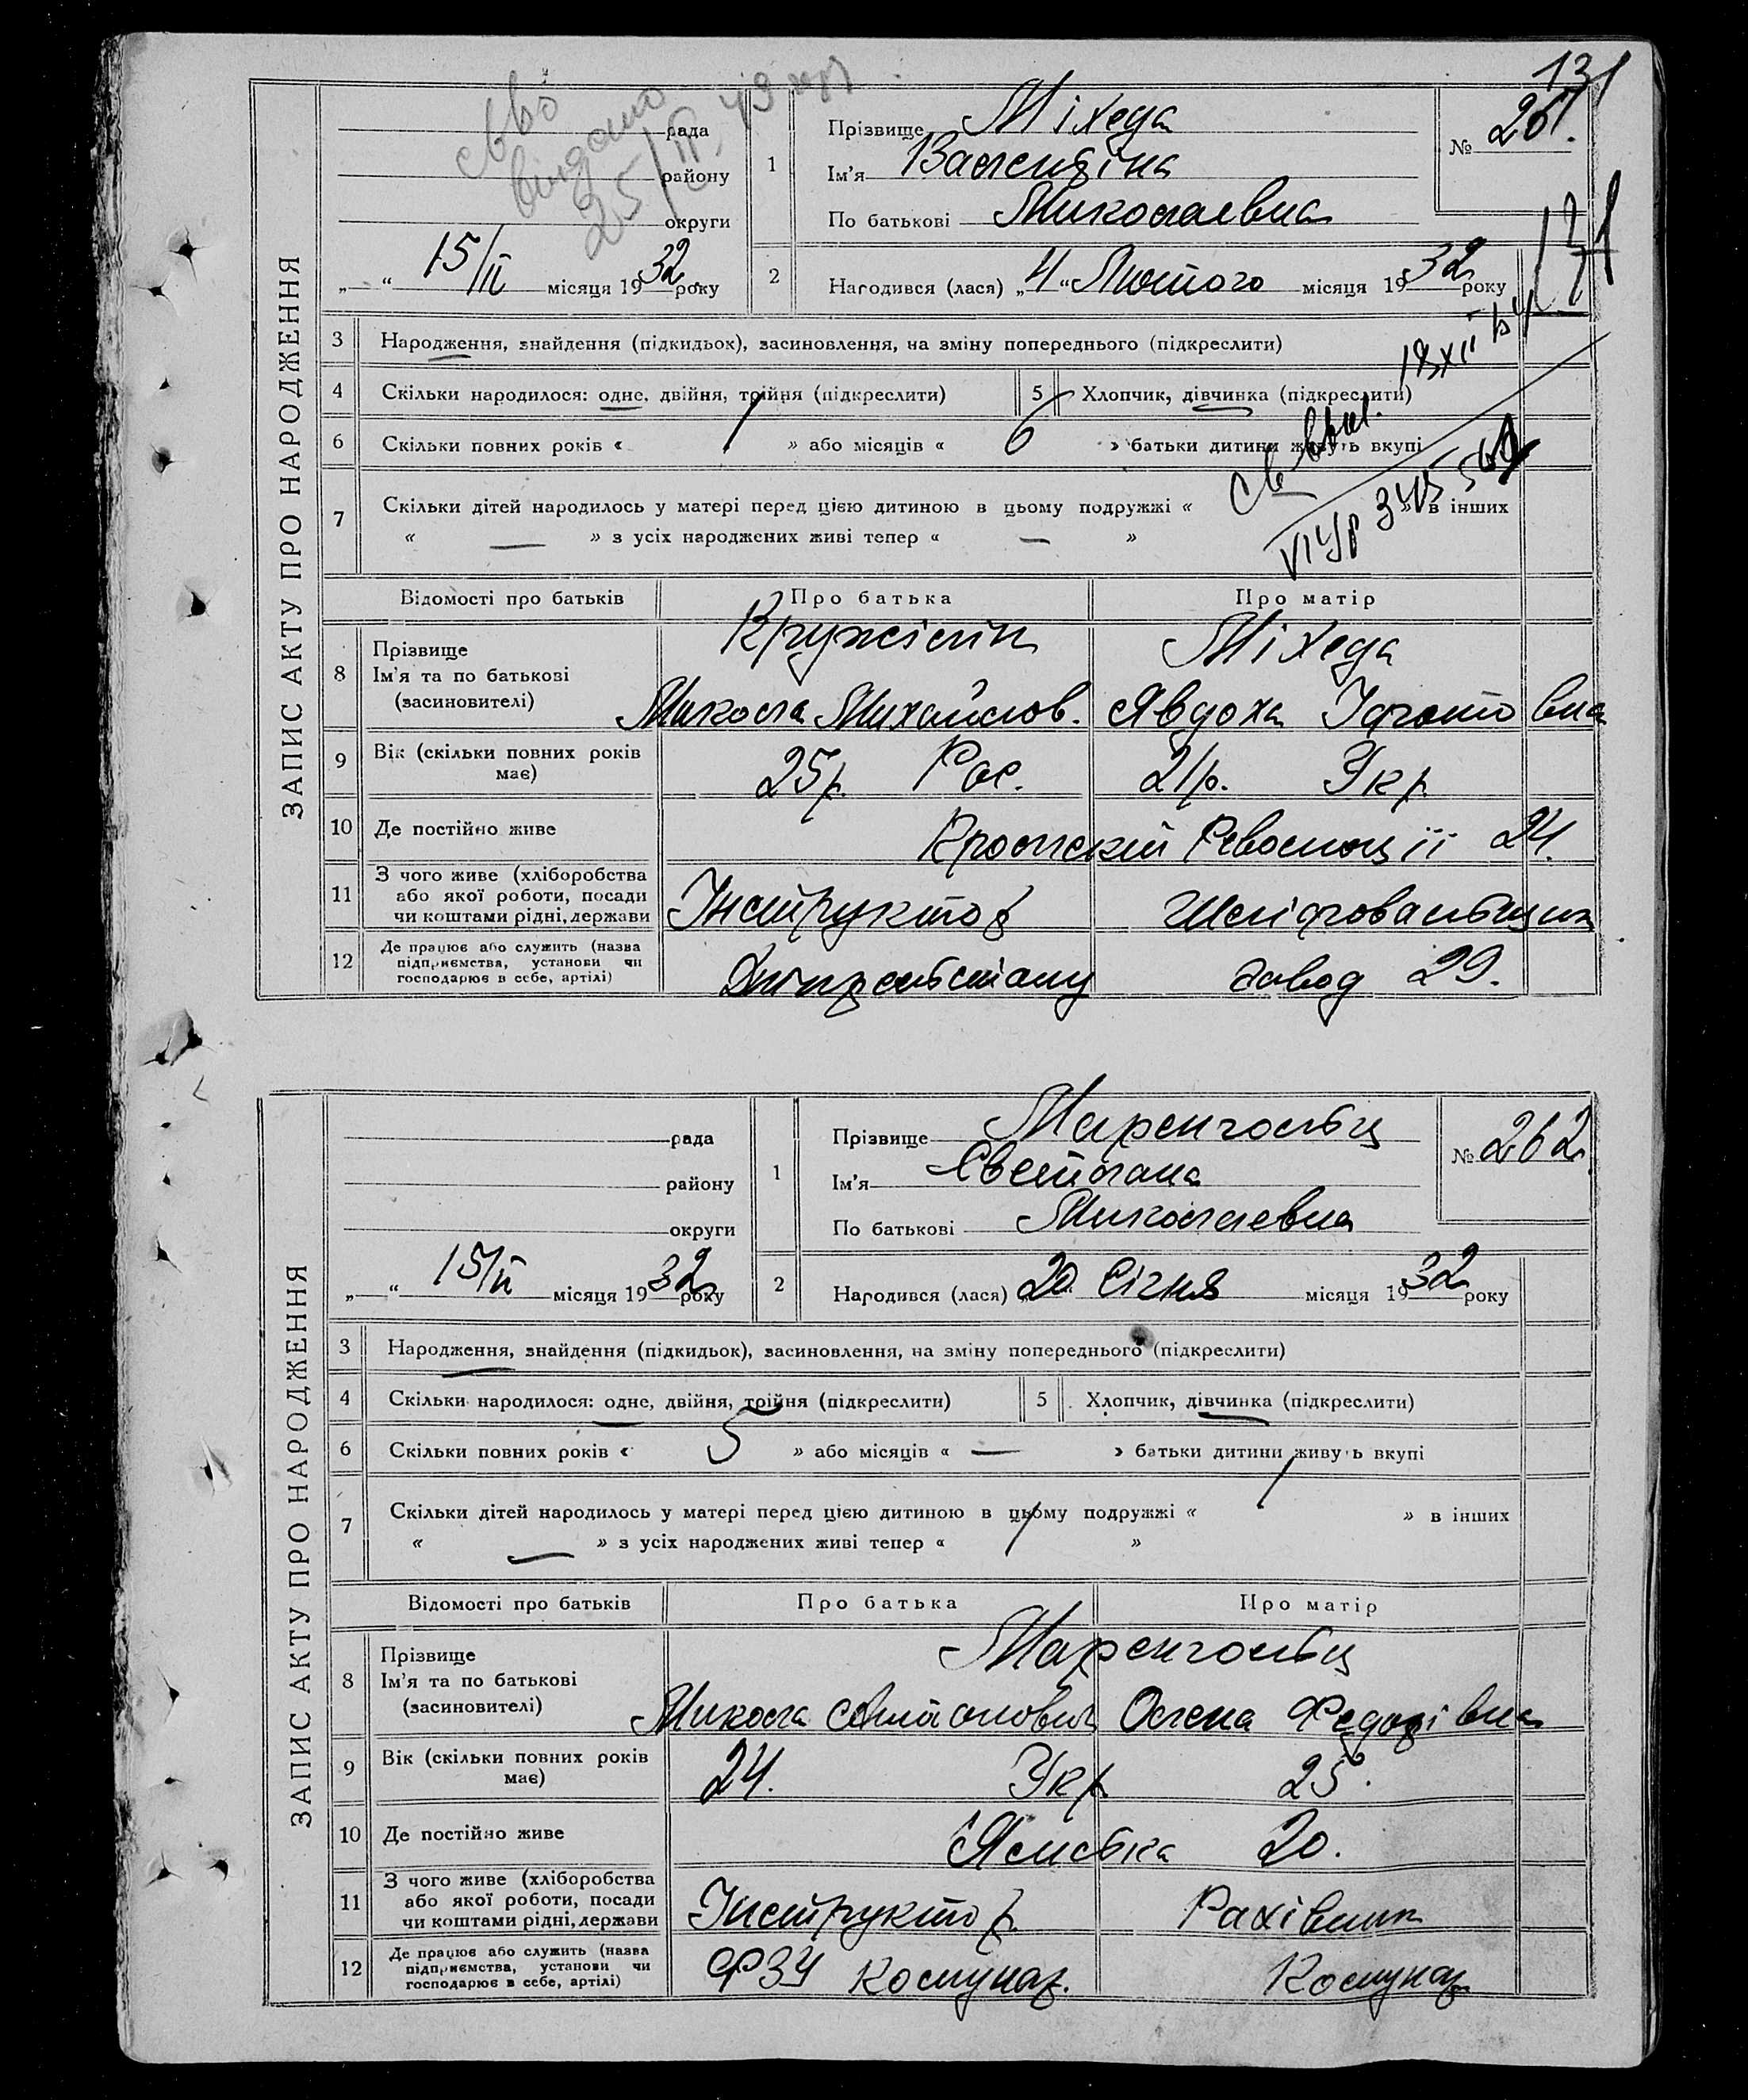 131
ЗАПИС АКТУ ПРО НАРОДЖЕННЯ
рада
району
округи
15/II місяця 1932 року
видано 25/II
1 Прізвище Міхеда
Ім'я Валентіна
По батькові Миколаевна
№ 261.
131
2 Народився (лася) „4“ Лютого місяця 1932 року
3 Народження, знайдення (підкидьок), засиновлення, на зміну попереднього (підкреслити)
4 Скільки народилося: одне, двійня, трійня (підкреслити) 5 Хлопчик, дівчинка (підкреслити)
6 Скільки повних років « 1 » або місяців « 6 » батьки дитини живуть вкупі
7 Скільки дітей народилось у матері перед цією дитиною в цьому подружжі « » в інших
« — » з усіх народжених живі тепер « — »
Відомості про батьків Про батька Про матір
8 Прізвище Кружілін Міхеда
Ім'я та по батькові
(засиновителі) Микола Михайлов. Явдоха
9 Вік (скільки повних років має) 25р. Рос. 21р. Укр.
10 Де постійно живе Революції 24.
11 З чого живе (хліборобства або якої роботи, посади чи коштами рідні, держави Інструктор Шліфовальщик
12 Де працює або служить (назва підприємства, установи чи господарює в себе, артілі) завод 29.
ЗАПИС АКТУ ПРО НАРОДЖЕННЯ
рада
району
округи
15/II місяця 1932 року
1 Прізвище Маренгольц
Ім'я Светлана
По батькові Миколаевна
№ 262
2 Народився (лася) 20 Січня місяця 1932 року
3 Народження, знайдення (підкидьок), засиновлення, на зміну попереднього (підкреслити)
4 Скільки народилося: одне, двійня, трійня (підкреслити) 5 Хлопчик, дівчинка (підкреслити)
6 Скільки повних років « 5 » або місяців « — » батьки дитини живуть вкупі
7 Скільки дітей народилось у матері перед цією дитиною в цьому подружжі « 1 » в інших
« — » з усіх народжених живі тепер « 1 »
Відомості про батьків Про батька Про матір
8 Прізвище Маренгольц
Ім'я та по батькові
(засиновителі) Микола Олена Федорівна
9 Вік (скільки повних років має) 24. Укр. 25.
10 Де постійно живе 20.
11 З чого живе (хліборобства або якої роботи, посади чи коштами рідні, держави Інструктор Рахівник
12 Де працює або служить (назва підприємства, установи чи господарює в себе, артілі) ФЗУ Комунар. Комунар